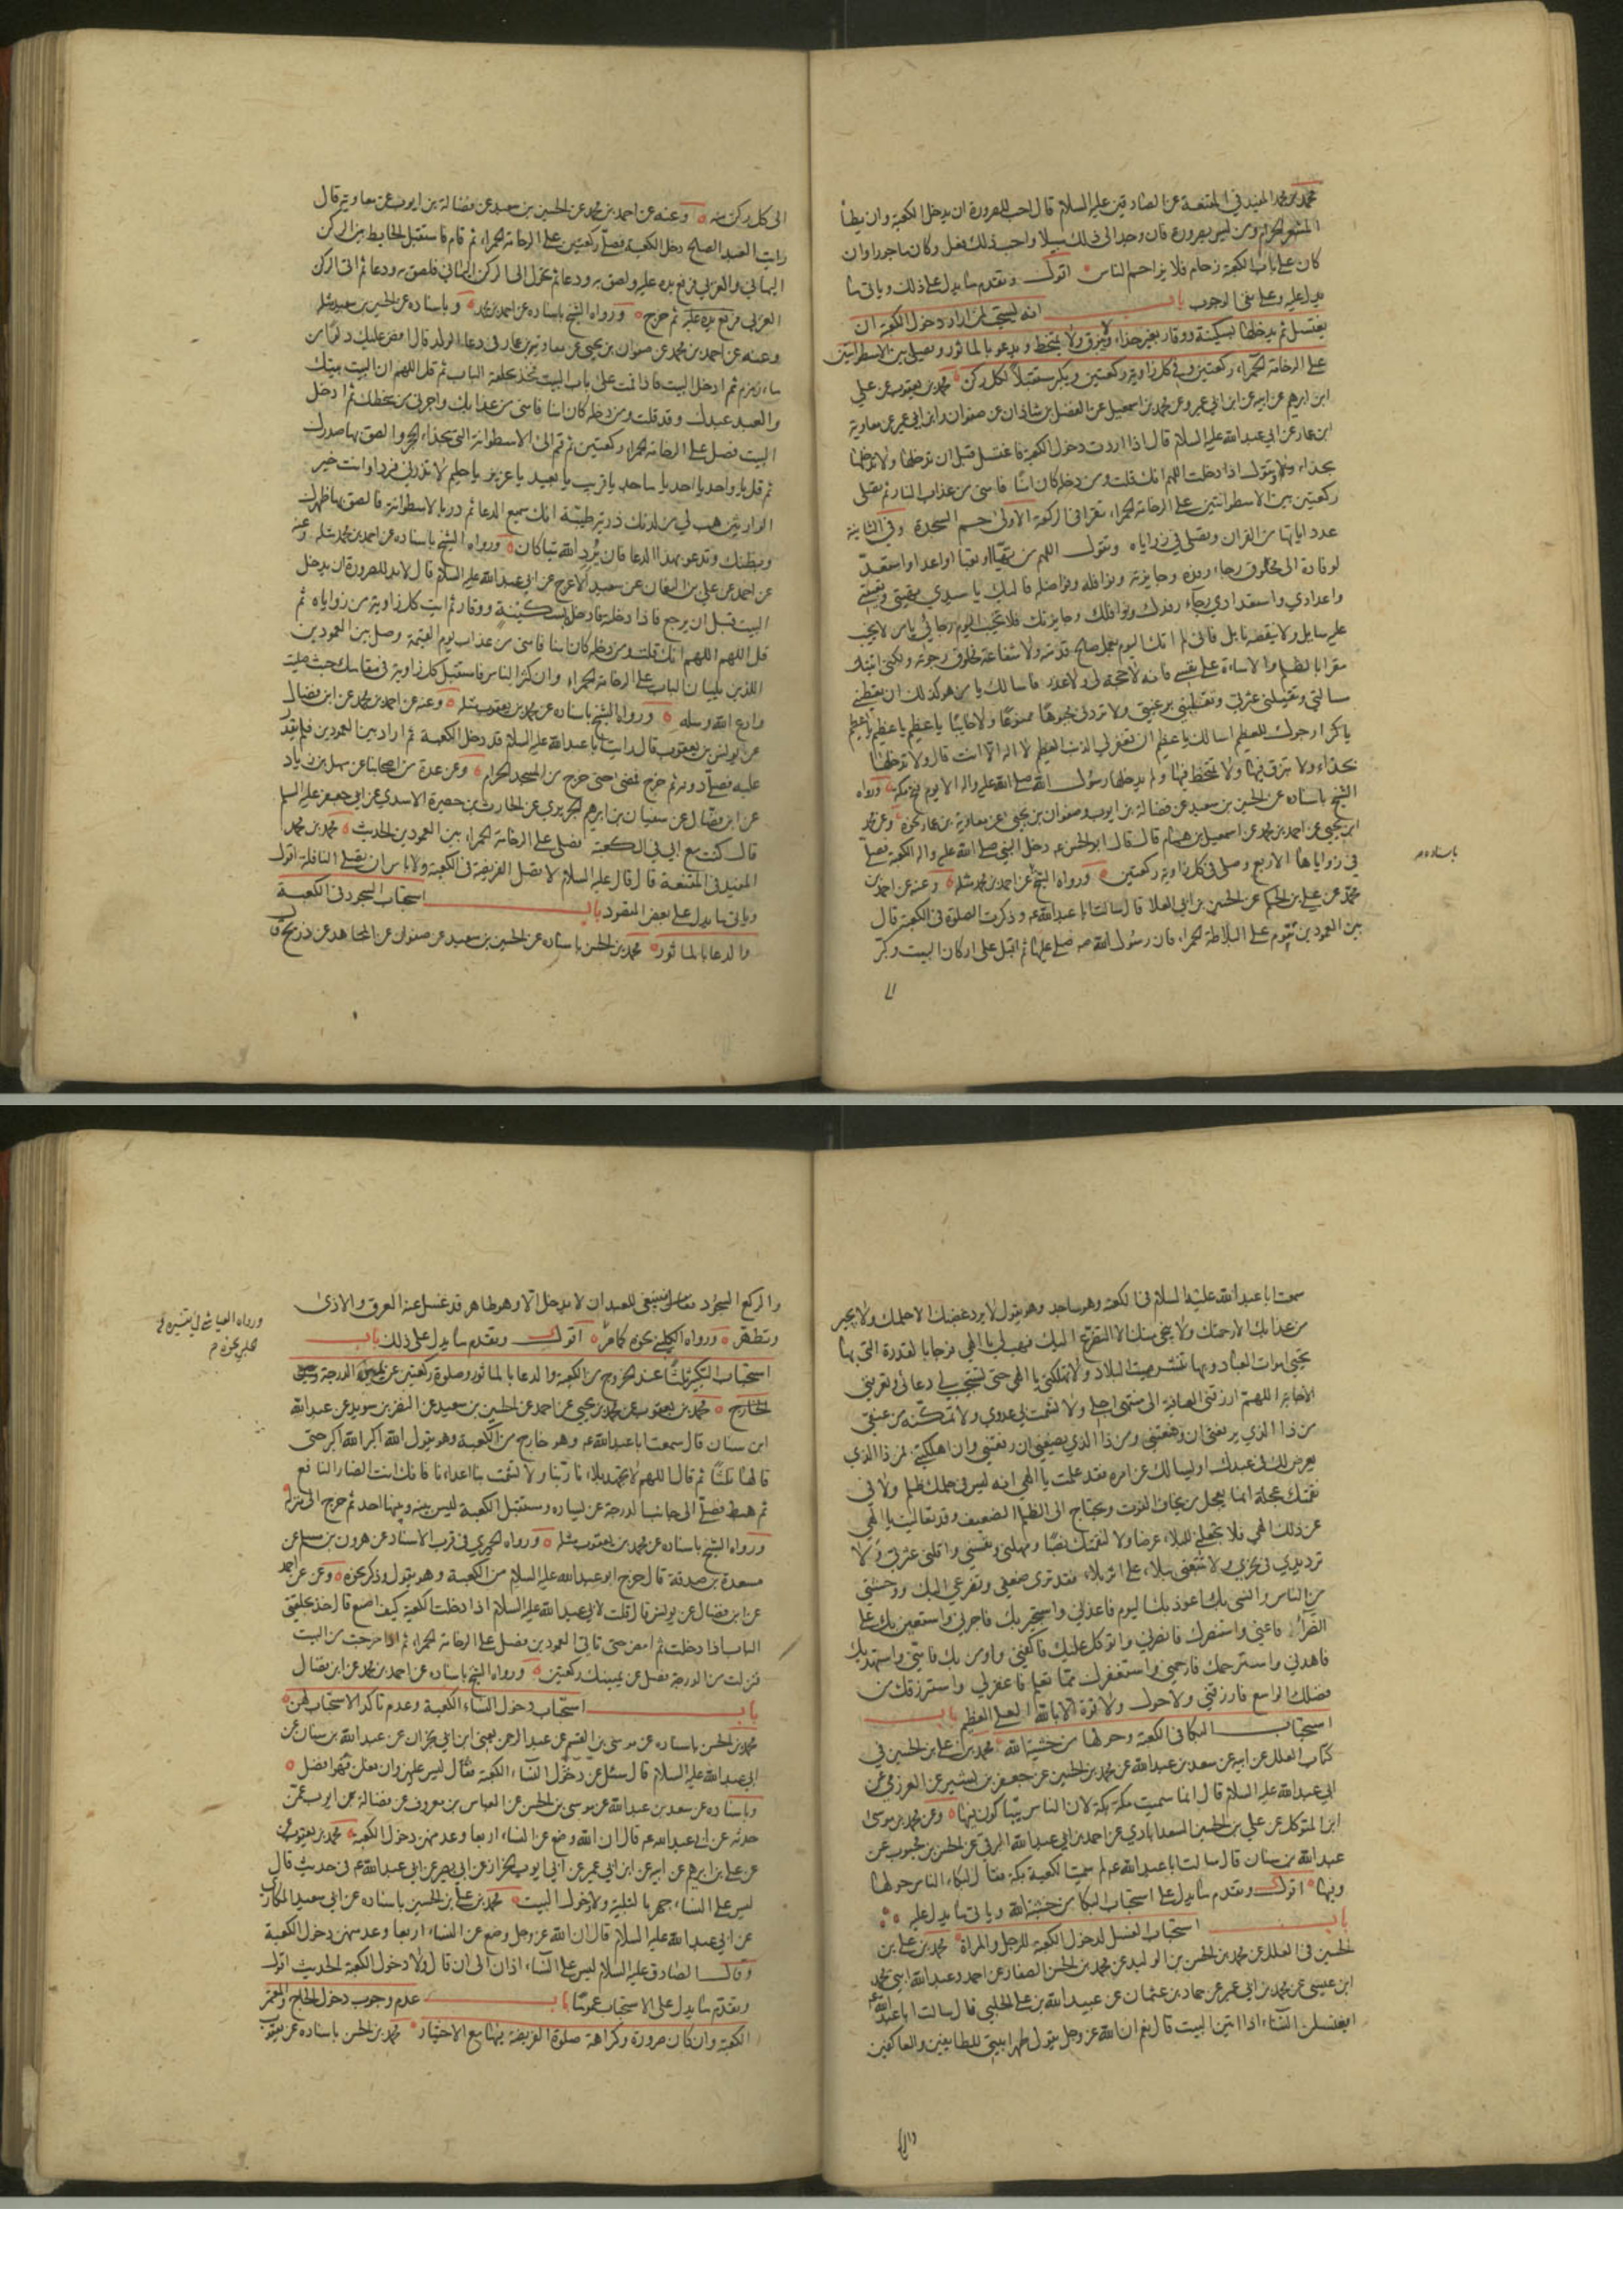 محمد بن محمد المفيد في المقنعة عن الصادقين عليهم السلام قال احب للصرورة ان يدخل الكعبة وان يطأ
المشعر الحرام ومن ليس بصرورة فان وجد الى ذلك سبيلا واحب ذلك فعل وكان ماجورا وان
كان على باب الكعبة زحام فلا يزاحم الناس اقول وتقدم ما يدل على ذلك وياتي ما
يدل عليه وعلى نفي الوجوب باب انه يستحب لمن اراد دخول الكعبة ان
يغتسل ثم يدخلها بسكينة ووقار بغير حذاء ولا يبزق ولا يمتخط ويدعو بالماثور ويصلي بين الاسطوانتين
على الرخامة الحمراء ركعتين وفي كل زاوية ركعتين ويكبر مستقبلا لكل ركن محمد بن يعقوب عن علي
ابن ابرهيم عن ابيه عن ابن ابي عمير وعن محمد بن اسمعيل عن الفضل بن شاذان عن صفوان وابن ابي عمير عن معاوية
ابن عمار عن ابي عبد الله عليه السلام قال اذا اردت دخول الكعبة فاغتسل قبل ان تدخلها ولا تدخلها
بحذاء وتقول اذا دخلت اللهم انك قلت ومن دخله كان امنا فامني من عذاب النار ثم تصلي
ركعتين بين الاسطوانتين على الرخامة الحمراء تقرا في الركعة الاولى حم السجدة وفي الثانية
عدد اياتها من القران وتصلي في زواياه وتقول اللهم من تهيأ او تعبا او اعد او استعد
لوفادة الى مخلوق رجاء رفده وجايزته ونوافله وفواضله فاليك يا سيدي تهيئتي وتعبئتي
واعدادي واستعدادي رجاء رفدك ونوافلك وجايزتك فلا تخيب اليوم رجائي يا من لا يخيب
عليه سايل ولا ينقصه نايل فاني لم اتك اليوم بعمل صالح قدمته ولا شفاعة مخلوق رجوته ولكني اتيتك
مقرا بالظلم والاساءة على نفسي فانه لا حجة لي ولا عذر فاسالك يا من هو كذلك ان تعطيني
مسالتي وتقيلني عثرتي وتقلبني برغبتي ولا تردني مجبوها ممنوعا ولا خايبا يا عظيم يا عظيم يا عظيم
ارجوك للعظيم اسالك يا عظيم ان تغفر لي الذنب العظيم لا اله الا انت قال ولا تدخلها
بحذاء ولا تبزق فيها ولا تمتخط فيها ولم يدخلها رسول الله صلى الله عليه واله الا يوم فتح مكة ورواه
الشيخ باسناده عن الحسين بن سعيد عن فضالة بن ايوب وصفوان بن يحيى عن معاوية بن عمار نحوه وعن محمد
ابن يحيى عن احمد بن محمد عن اسمعيل بن همام قال قال ابو الحسن ع دخل النبي صلى الله عليه واله الكعبة فصلى
في زواياها الاربع وصلى في كل زاوية ركعتين ورواه الشيخ عن احمد بن محمد مثله وعنه عن احمد بن
باسناده صح
محمد عن علي بن الحكم عن الحسين بن ابي العلا قال سالت ابا عبد الله ع وذكرت الصلوة في الكعبة قال
بين العمودين تقوم على البلاطة الحمراء فان رسول الله صه صلى عليها ثم اقبل على اركان البيت وكبر
الى
الى كل ركن منه وعنه عن احمد بن محمد عن الحسين بن سعيد عن فضالة بن ايوب عن معاوية قال
رايت العبد الصالح دخل الكعبة فصلى ركعتين على الرخامة الحمراء ثم قام فاستقبل الحايط بين الركن
اليماني والغربي فرفع يده عليه ولصق به ودعا ثم تحول الى الركن اليماني فلصق به ودعا ثم اتى الركن
الغربي فرفع يده عليه ثم خرج ورواه الشيخ باسناده عن احمد بن محمد وباسناده عن الحسين بن سعيد مثله
وعنه عن احمد بن محمد عن صفوان بن يحيى عن معاوية بن عمار في دعاء الولد قال افض عليك دلوا من
ماء زمزم ثم ادخل البيت فاذا قمت على باب البيت فخذ بحلقة الباب ثم قل اللهم ان البيت بيتك
والعبد عبدك وقد قلت ومن دخله كان امنا فامني من عذابك واجرني من سخطك ثم ادخل
البيت فصل على الرخامة الحمراء ركعتين ثم قم الى الاسطوانة التي بحذاء الحجر والصق بها صدرك
ثم قل يا واحد يا احد يا ماجد يا قريب يا بعيد يا عزيز يا حليم لا تذرني فردا وانت خير
الوارثين هب لي من لدنك ذرية طيبة انك سميع الدعا ثم در بالاسطوانة فالصق بها ظهرك
وبطنك وتدعو بهذا الدعا فان يرد الله شيا كان ورواه الشيخ باسناده عن احمد بن محمد مثله وعنه
عن احمد عن علي بن النعمان عن سعيد الاعرج عن ابي عبد الله عليه السلام قال لابد للصرورة ان يدخل
البيت قبل ان يرجع فاذا دخلته فادخله بسكينة ووقار ثم ائت كل زاوية من زواياه ثم
قل اللهم انك قلت ومن دخله كان امنا فامني من عذاب يوم القيمة وصل بين العمودين
اللذين يليان الباب على الرخامة الحمراء وان كثر الناس فاستقبل كل زاوية في مقامك حيث صليت
وادع الله وسله ورواه الشيخ باسناده عن محمد بن يعقوب مثله وعنه عن احمد بن محمد عن ابن فضال
عن يونس بن يعقوب قال رايت ابا عبد الله عليه السلام قد دخل الكعبة ثم اراد بين العمودين فلم يقدر
عليه فصلى دونه ثم خرج فمضى حتى خرج من المسجد الحرام وعن عدة من اصحابنا عن سهل بن زياد
عن ابن فضال عن سفيان بن ابرهيم الجريري عن الحارث بن حصيرة الاسدي عن ابي جعفر عليه السلم
قال كنت مع ابي في الكعبة فصلى على الرخامة الحمراء بين العمودين الحديث محمد بن محمد
المفيد في المقنعة قال قال عليه السلام لا تصل الفريضة في الكعبة ولا باس ان تصلي النافلة اقول
وياتي ما يدل على بعض المقصود باب استحباب السجود في الكعبة
والدعا بالماثور محمد بن الحسن باسناده عن الحسين بن سعيد عن صفوان عن المجاهد عن ذريح قا
سمعت ابا عبد الله عليه السلام في الكعبة وهو ساجد وهو يقول لا يرد غضبك الا حلمك ولا يجير
من عذابك الا رحمتك ولا ينجي منك الا التضرع اليك فهب لي يا الهي فرجا بالقدرة التي بها
تحيي اموات العباد وبها تنشر ميت البلاد ولا تهلكني يا الهي حتى تستجيب لي دعائي وتعرفني
الاجابة اللهم ارزقني العافية الى منتهى اجلي ولا تشمت بي عدوي ولا تمكنه من عنقي
من ذا الذي يرفعني ان وضعتني ومن ذا الذي يضعني ان رفعتني وان اهلكتني فمن ذا الذي
يعرض لك في عبدك او يسالك عن امره فقد علمت يا الهي انه ليس في حكمك ظلم ولا في
نقمتك عجلة انما يعجل من يخاف الفوت ويحتاج الى الظلم الضعيف وقد تعاليت يا الهي
عن ذلك الهي فلا تجعلني للبلاء غرضا ولا لنقمتك نصبا ومهلني ونفسني واقلني عثرتي ولا
ترد يدي في نحري ولا تتبعني ببلاء على اثر بلاء فقد ترى ضعفي وتضرعي اليك ووحشتي
من الناس وانسي بك اعوذ بك اليوم فاعذني واستجير بك فاجرني واستعين بك على
الضراء فاعني واستنصرك فانصرني واتوكل عليك فاكفني واومن بك فامني واستهديك
فاهدني واسترحمك فارحمني واستغفرك مما تعلم فاغفر لي واسترزقك من
فضلك الواسع فارزقني ولا حول ولا قوة الا بالله العلي العظيم باب
استحباب البكا في الكعبة وحولها من خشية الله محمد بن علي بن الحسين في
كتاب العلل عن ابيه عن سعد بن عبد الله عن محمد بن الحسين عن جعفر بن بشير عن العرزمي عن
ابي عبد الله عليه السلام قال انما سميت مكة بكة لان الناس يتباكون فيها وعن محمد بن موسى
ابن المتوكل عن علي بن الحسين السعدابادي عن احمد بن ابي عبد الله البرقي عن الحسن بن محبوب عن
عبد الله بن سنان قال سالت ابا عبد الله ع لم سميت الكعبة بكة فقال لبكاء الناس حولها
وفيها اقول وتقدم ما يدل على استحباب البكا من خشية الله وياتي ما يدل عليه
باب استحباب الغسل لدخول الكعبة للرجل والمراة محمد بن علي بن
الحسين في العلل عن محمد بن الحسن بن الوليد عن محمد بن الحسن الصفار عن احمد وعبد الله ابني محمد
ابن عيسى عن محمد بن ابي عمير عن حماد بن عثمان عن عبيد الله بن علي الحلبي قال سالت ابا عبد الله ع
ايغتسلن النساء اذا اتين البيت قال نعم ان الله عز وجل يقول طهرا بيتي للطايفين والعاكفين
والركع
والركع السجود فينبغي للعبد ان لا يدخل الا وهو طاهر قد غسل عنه العرق والاذى
ورواه العياشي في تفسيره عن
الحلبي نحوه م
وتطهر ورواه الكليني نحوه كما مر اقول وتقدم ما يدل على ذلك باب
استحباب التكبير ثلثا عند الخروج من الكعبة والدعا بالماثور وصلوة ركعتين عن يمين الدرجة
للخارج محمد بن يعقوب عن محمد بن يحيى عن احمد عن الحسين بن سعيد عن النضر بن سويد عن عبد الله
ابن سنان قال سمعت ابا عبد الله ع وهو خارج من الكعبة وهو يقول الله اكبر الله اكبر حتى
قالها ثلثا ثم قال اللهم لا تجهد بلاءنا ربنا ولا تشمت بنا اعداءنا فانك انت الضار النافع
ثم هبط فصلى الى جانب الدرجة عن يساره وستقبل الكعبة ليس بينه وبينها احد ثم خرج الى منزله
ورواه الشيخ باسناده عن محمد بن يعقوب مثله ورواه الحميري في قرب الاسناد عن هرون بن مسلم عن
مسعدة بن صدقة قال خرج ابو عبد الله عليه السلام من الكعبة وهو يقول وذكر نحوه وعنه عن احمد
عن ابن فضال عن يونس قال قلت لابي عبد الله عليه السلام اذا دخلت الكعبة كيف اصنع قال خذ بحلقتي
الباب اذا دخلت ثم امض حتى تاتي العمودين فصل على الرخامة الحمراء ثم اذا خرجت من البيت
فنزلت من الدرجة فصل عن يمينك ركعتين ورواه الشيخ باسناده عن احمد بن محمد عن ابن فضال
باب استحباب دخول النساء الكعبة وعدم تاكد الاستحباب لهن
محمد بن الحسن باسناده عن موسى بن القسم عن عبد الرحمن يعني ابن ابي نجران عن عبد الله بن سنان عن
ابي عبد الله عليه السلام قال سئل عن دخول النساء الكعبة فقال ليس عليهن وان فعلن فهو افضل
وباسناده عن سعد بن عبد الله عن موسى بن الحسن عن العباس بن معروف عن فضالة عن ايوب عمن
حدثه عن ابي عبد الله ع قال ان الله وضع عن النساء اربعا وعد منهن دخول الكعبة محمد بن يعقوب
عن علي بن ابرهيم عن ابيه عن ابن ابي عمير عن ابي ايوب الخزاز عن ابي بصير عن ابي عبد الله ع في حديث قال
ليس على النساء جهر بالتلبية ولا دخول البيت محمد بن علي بن الحسين باسناده عن ابي سعيد المكاري
عن ابي عبد الله عليه السلام قال ان الله عز وجل وضع عن النساء اربعا وعد منهن دخول الكعبة
وقال الصادق عليه السلام ليس على النساء اذان الى ان قال ولا دخول الكعبة الحديث اقول
وتقدم ما يدل على الاستحباب عموما باب عدم وجوب دخول الحاج والمعتمر
الكعبة وان كان صرورة وكراهة صلوة الفريضة فيها مع الاختيار محمد بن الحسن باسناده عن يعقوب